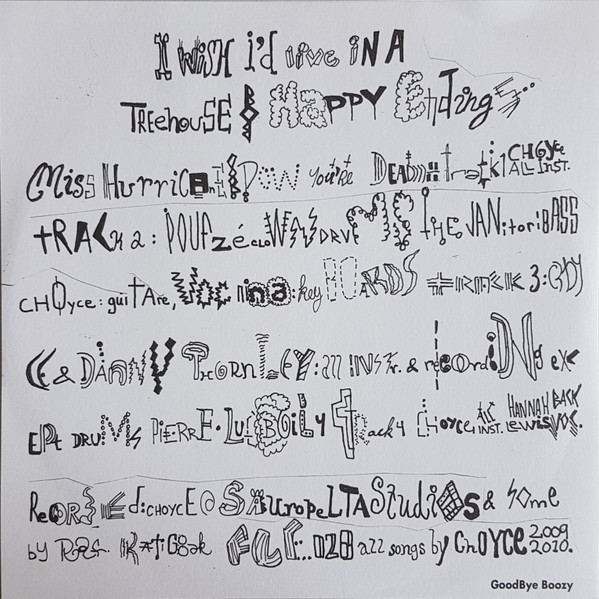 I WiSH i'd live iN A
TReehouSE & HaPPY Endings...
Miss HurricanE & POW You're Dead track 1 CHOyce ALL INST.
tRACk 2: POUPzé DRUMS THE JANitor: BASS
CHOyce: guitAre, nina: keyBOARDS tRACK 3: CHOy
CE & DANNY THORNLEY: all INSTr. & recORDiNg exc
EPt DRUMS PiERRE-LucBOiLY track 4 Choyce ALL INST. HANNAH LewisBACK VOX.
ReCORDEd: CHOYCE SAuropeLTA StudiOS & SOme
by FLF...028 all songs by CHOYCE 2009 2010.
GoodBye Boozy